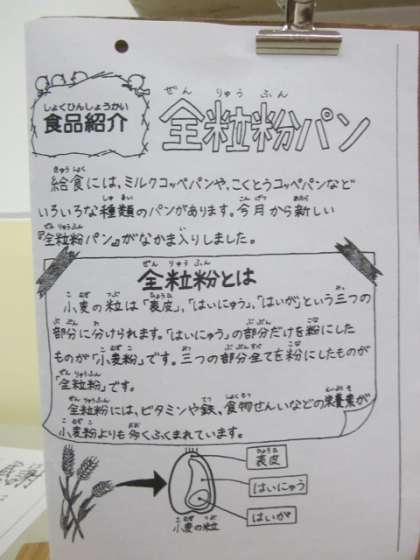 しょくひんしょうかい
食品紹介
ぜんりゅうふん
全粒粉パン
給食には、ミルクコッペパンや、こくとうコッペパンなど
いろいろな種類のパンがあります。今月から新しい
『全粒粉パン』がなかま入りしました。
ぜんりゅうふん
全粒粉とは
小麦の粒は「表皮」、「はいにゅう」、「はいが」という三つの
部分に分けられます。「はいにゅう」の部分だけを粉にした
ものが「小麦粉」です。三つの部分全てを粉にしたものが
「全粒粉」です。
全粒粉には、ビタミンや鉄、食物せんいなどの栄養素が
小麦粉よりも多くふくまれています。
表皮
はいにゅう
はいが
小麦の粒